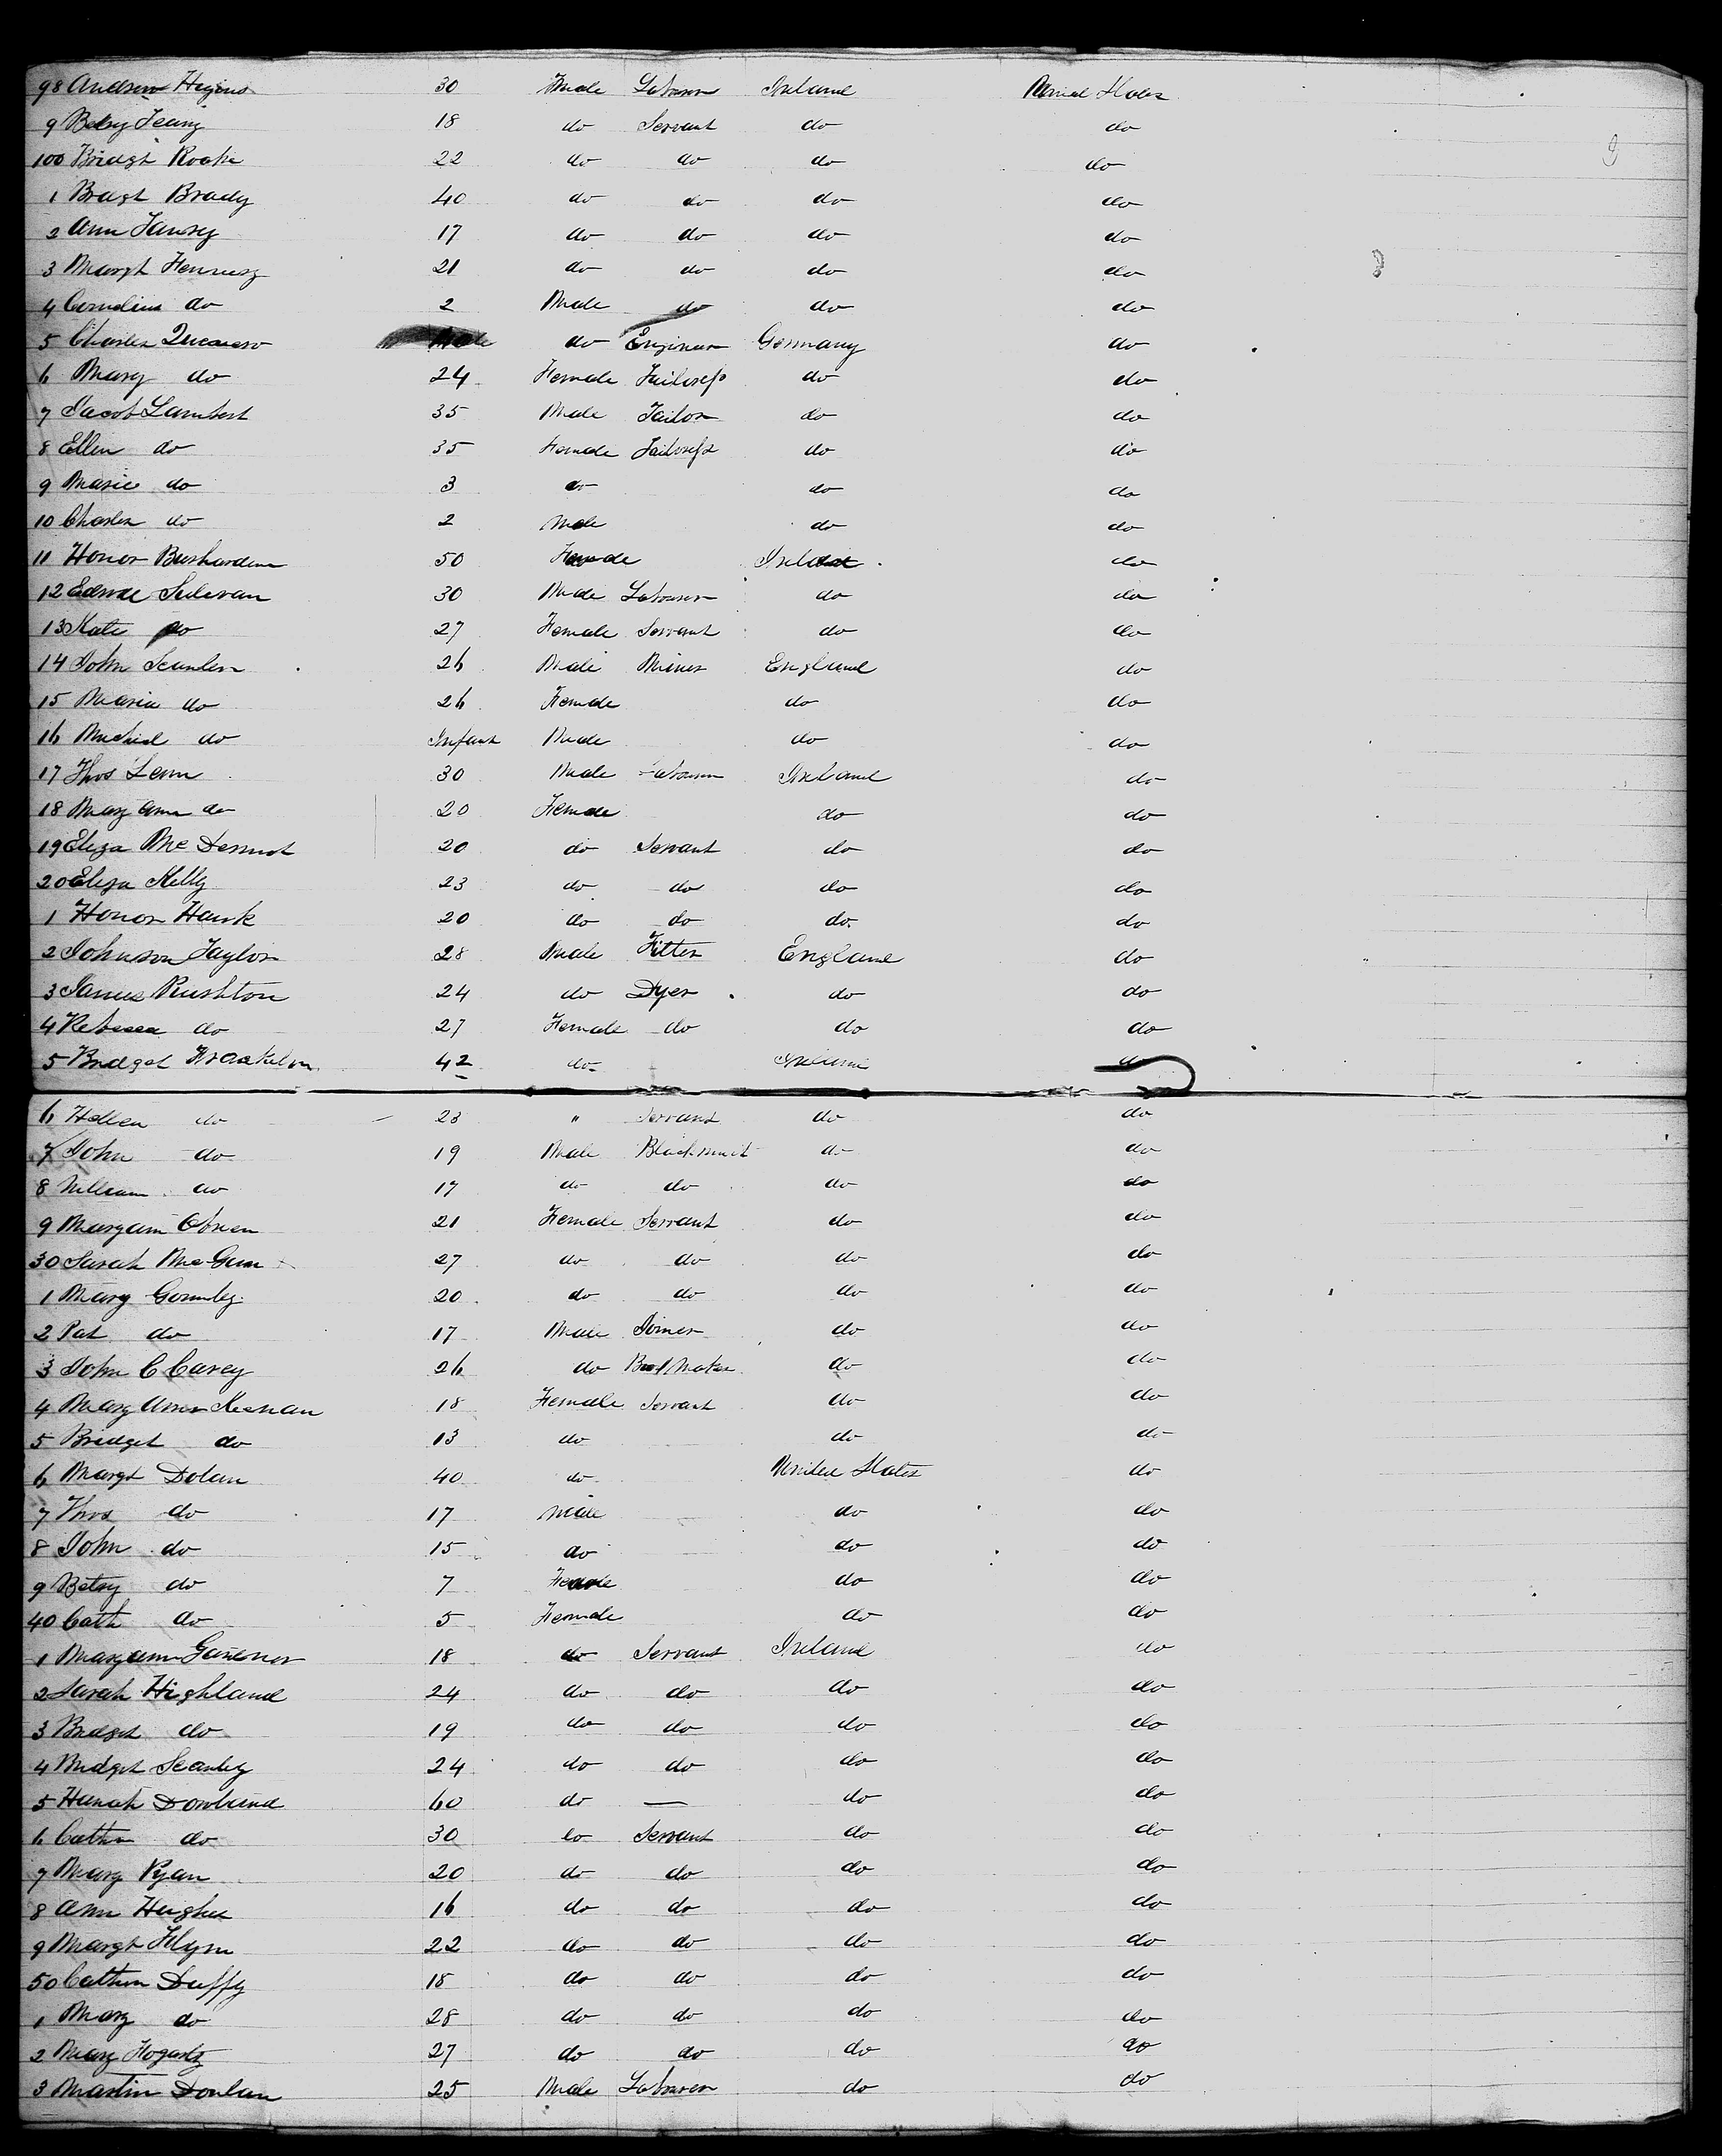 98 Andrew Higins 30 Male Labourer Ireland United States
9 Betsy 18 do Servant do do
100 Bridgt Roake 22 do do do do
1 Bridgt Brady 40 do do do do
2 Ann 17 do do do do
3 Margt Hennesy 21 do do do do
4 Cornelius do 2 Male do do do
5 Charles do Engineer Germany do
6 Mary do 24 Female Tailoress do do
7 Jacob Lambert 35 Male Tailor do do
8 Ellen do 35 Female Tailoress do do
9 Marie do 3 do do do
10 Charles do 2 Male do do
11 Honor 50 Female Ireland do
12 Edmd Sulivan 30 Male Labourer do do
13 Kate do 27 Female Servant do do
14 John Scanlen 26 Male Miner England do
15 Maria do 26 Female do do
16 Michael do Infant Male do do
17 Thos 30 Male Labourer Ireland do
18 Mary Ann do 20 Female do do
19 Eliza McDermot 20 do Servant do do
20 Eliza Kelly 23 do do do do
1 Honor Hawk 20 do do do do
2 Johnson Taylor 28 Male Fitter England do
3 James Rushton 24 do Dyer do do
4 Rebecca do 27 Female do do do
5 Bridget 42 do Ireland do
6 Hellen do 23 " Servant do do
7 John do 19 Male Blacksmith do do
8 William do 17 do do do do
9 Margam Obrien 21 Female Servant do do
30 Sarah McGann 27 do do do do
1 Mary Gormley 20 do do do do
2 Pat do 17 Male Joiner do do
3 John C Carey 26 do Boot Maker do do
4 Mary Ann Keenan 18 Female Servant do do
5 Bridget do 13 do do do
6 Margt Dolan 40 do United States do
7 Thos do 17 Male do do
8 John do 15 do do do
9 Betsy do 7 Female do do
40 Cath do 5 Female do do
1 Maryann Gardener 18 do Servant Ireland do
2 Sarah Highland 24 do do do do
3 Bridget do 19 do do do do
4 Bridget Scanley 24 do do do do
5 Hanah 60 do — do do
6 Cathn do 30 do Servant do do
7 Mary Ryan 20 do do do do
8 Ann Hughes 16 do do do do
9 Margt Flynn 22 do do do do
50 Cathern Duffy 18 do do do do
1 Mary do 28 do do do do
2 Mary Hogarty 27 do do do do
3 Martin Donlan 25 Male Labourer do do